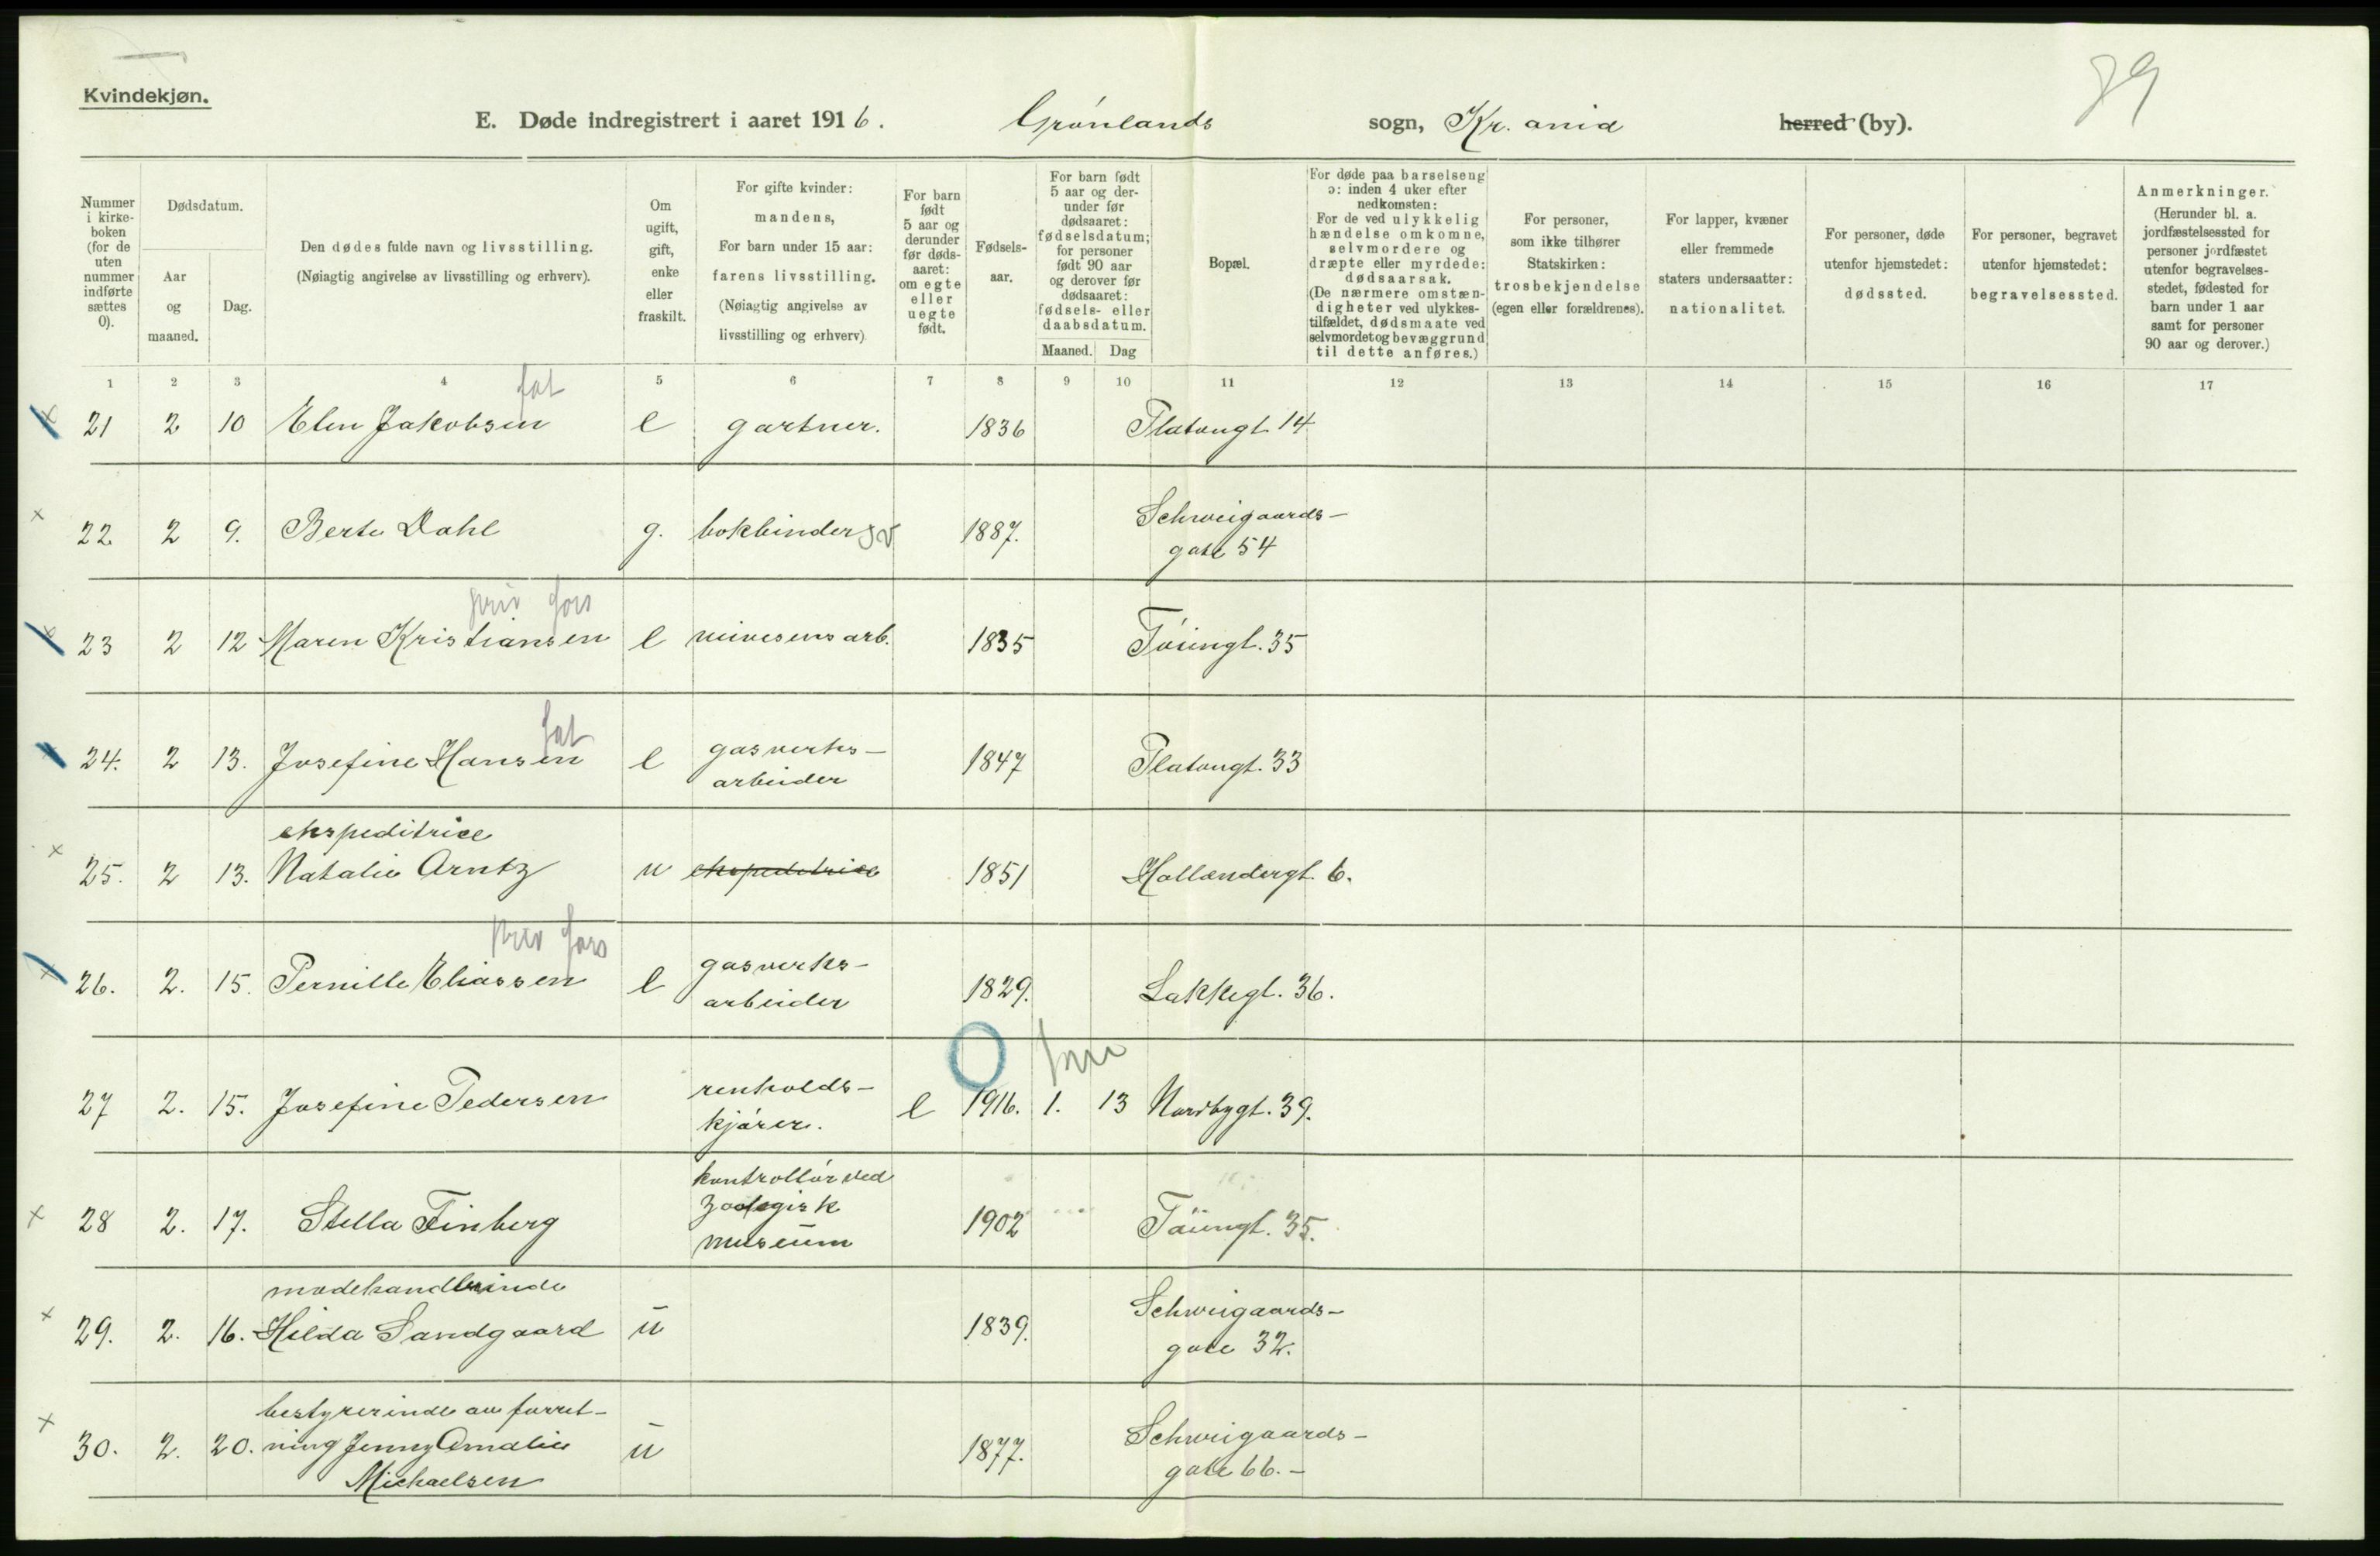 Kvindekjøn.
E. Døde indregistrert i aaret 1916. Grønlands sogn, Kr. ania herred (by).
79
Nummer i kirkeboken (for de uten nummer indførte sættes 0).
Dødsdatum.
Aar og maaned.
Dag.
Den dødes fulde navn og livsstilling.
(Nøiagtig angivelse av livsstilling og erhverv).
Om ugift, gift, enke eller fraskilt.
For gifte kvinder: mandens,
For barn under 15 aar: farens livsstilling.
(Nøiagtig angivelse av livsstilling og erhverv)
For barn født 5 aar og derunder før dødsaaret: om egte eller uegte født.
Fødselsaar.
For barn født 5 aar og derunder før dødsaaret: fødselsdatum; for personer født 90 aar og derover før dødsaaret: fødsels- eller daabsdatum.
Maaned. Dag
Bopæl.
For døde paa barselseng ɔ: inden 4 uker efter nedkomsten:
For de ved ulykkelig hændelse omkomne, selvmordere og dræpte eller myrdede: dødsaarsak.
(De nærmere omstændigheter ved ulykkestilfældet, dødsmaate ved selvmordet og bevæggrund til dette anføres.)
For personer, som ikke tilhører Statskirken: trosbekjendelse (egen eller forældrenes).
For lapper, kvæner eller fremmede staters undersaatter: nationalitet.
For personer, døde utenfor hjemstedet: dødssted.
For personer, begravet utenfor hjemstedet: begravelsessted.
Anmerkninger.
(Herunder bl. a. jordfæstelsessted for personer jordfæstet utenfor begravelsesstedet, fødested for barn under 1 aar samt for personer 90 aar og derover.)
1 2 3 4 5 6 7 8 9 10 11 12 13 14 15 16 17
fat
21 2 10 Elen Jakobsen e gartner. 1836 Platougt. 14
22 2 9. Berte Dahl g. bokbinder sv 1887. Schweigaards-
gate 54
priv fors
23 2 12 Maren Kristiansen e minesens arb. 1835 Tøiengt. 35
fat
24. 2 13. Josefine Hansen e gasverks-
arbeider 1847 Platougt. 33
ekspeditrice
25. 2 13. Natalie Arntz u ekspeditrice 1851 Hollendergt. 6.
priv fors
26. 2. 15. Pernille Eliassen e gasverks-
arbeider 1829. Lakkegt. 36.
27 2. 15. Josefine Pedersen renholds-
kjører. e 1916. 1. 13 Nordbygt. 39.
28 2. 17. Stella Finberg kontrollør ved
zoologisk
museum 1902 Tøiengt. 35.
modehandlerinde
29. 2. 16. Hilda Sandgaard u 1839. Schweigaards-
gate 32.
bestyrerinde av forret-
30. 2. 20. ning Jenny Amalie u 1877. Schweigaards-
Michaelsen gate 66. -